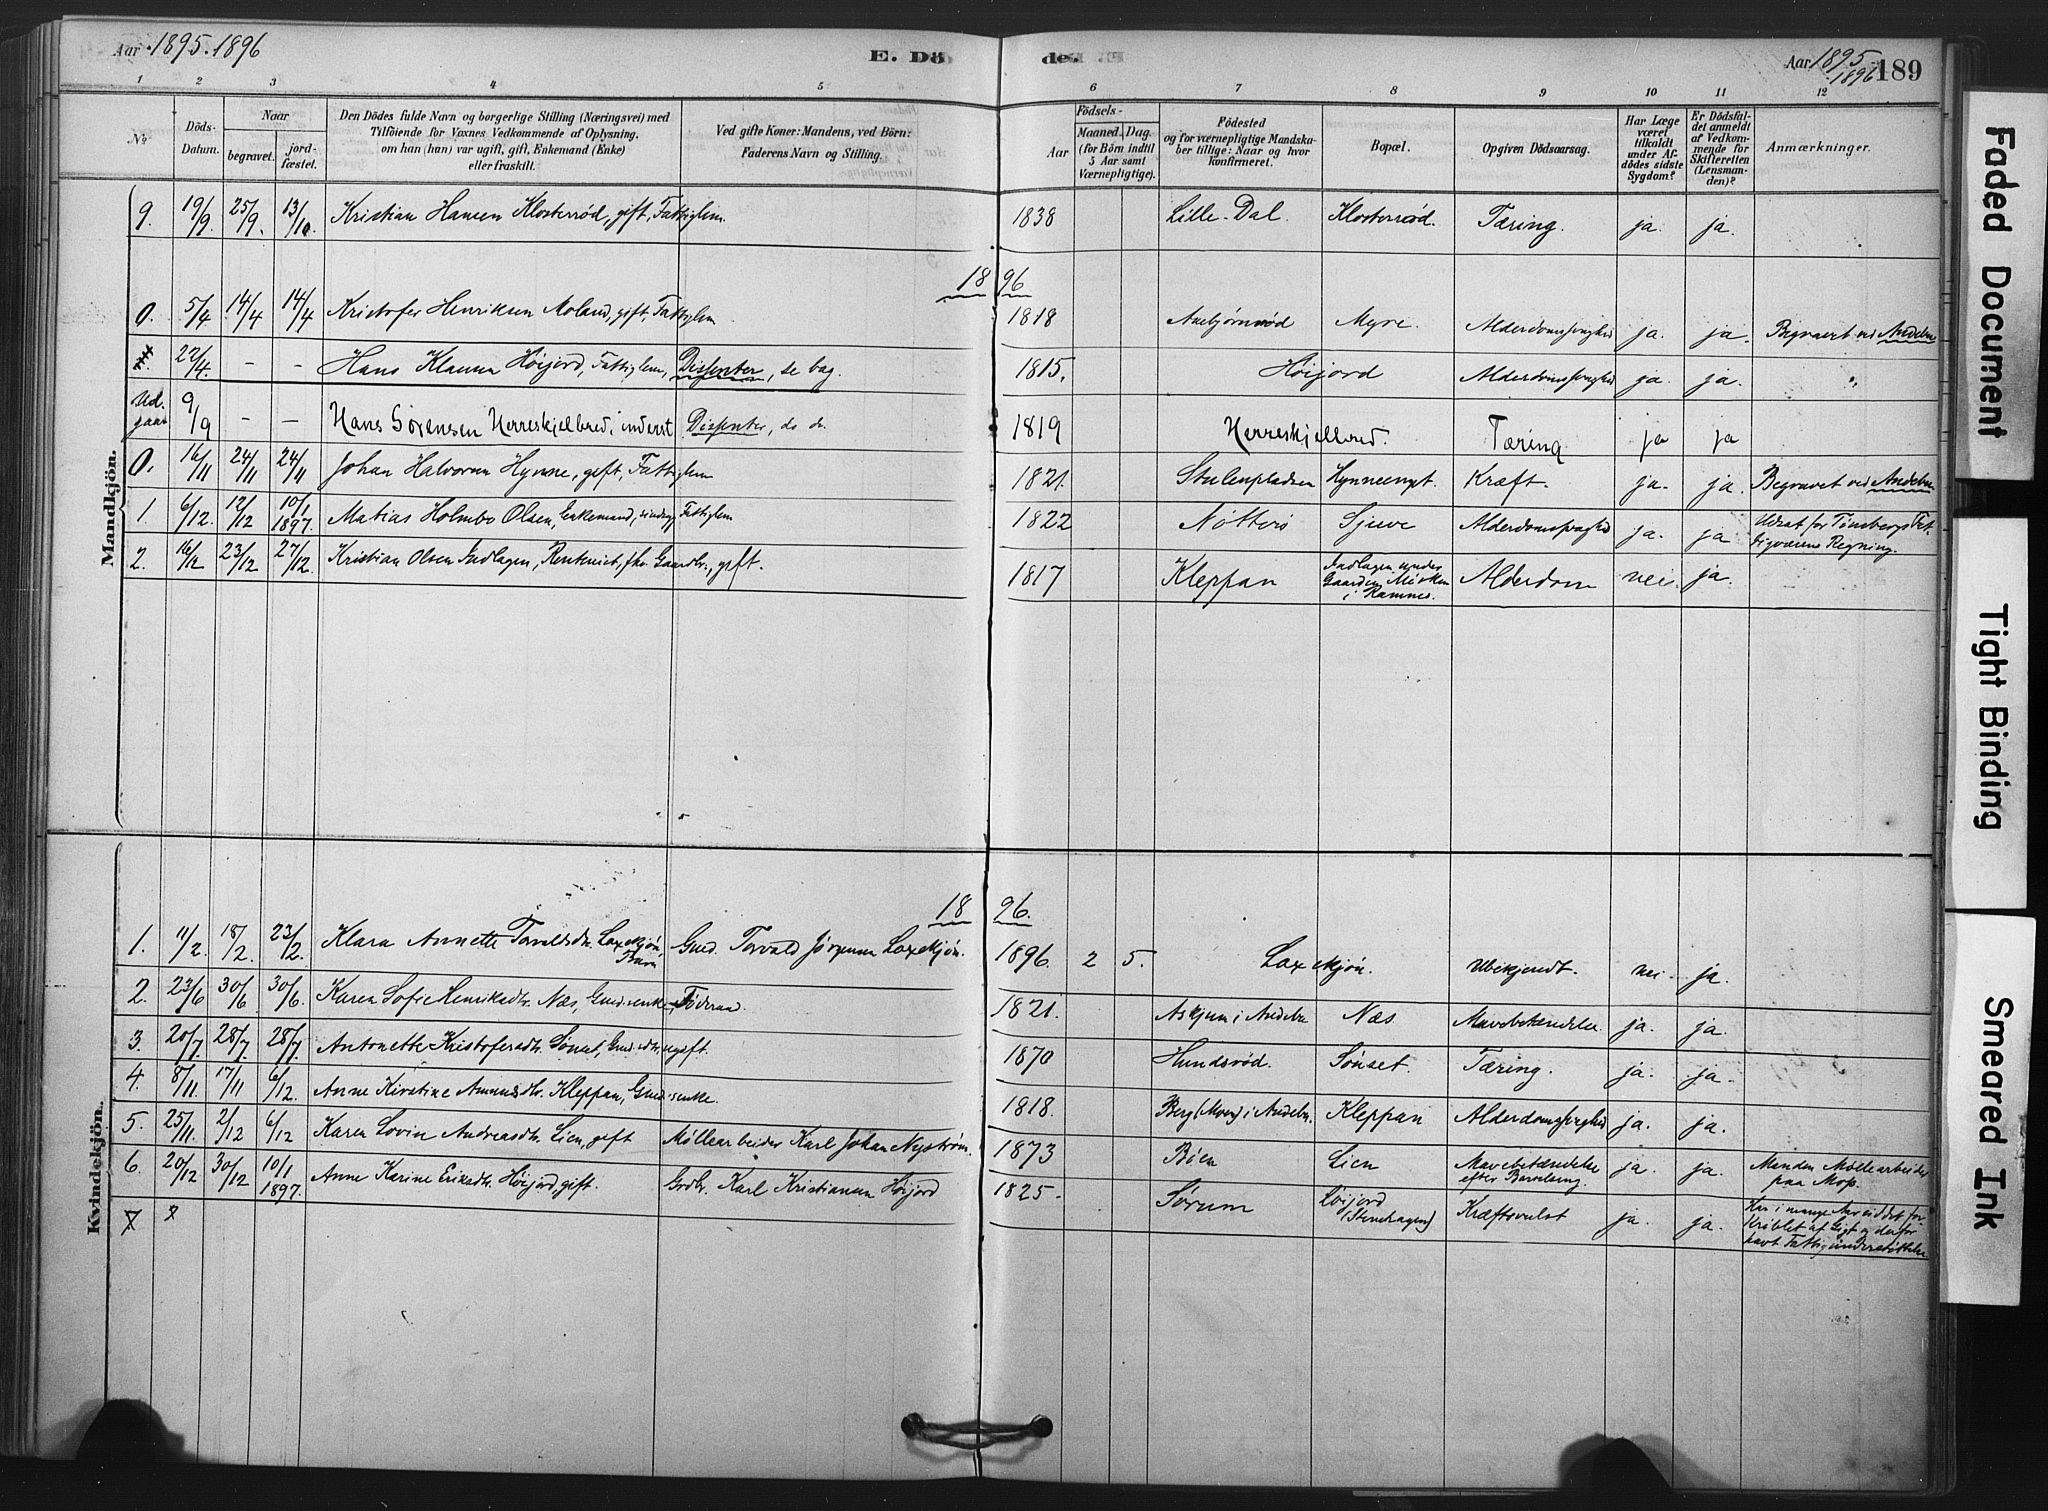 Aar 1895. 1896
E. Döde.
Aar 1895 1896
189
1 2 3 4 5 6 7 8 9 10 11 12
No
Döds-Datum.
Naar
begravet.
jord-fæstet.
Den Dödes fulde Navn og borgerlige Stilling (Næringsvei) med
Tilföiende for Voxnes Vedkommende af Oplysning,
om han (hun) var ugift, gift, Enkemand (Enke)
eller fraskilt.
Ved gifte Koner: Mandens, ved Börn:
Faderens Navn og Stilling.
Födsels-
Aar
Maaned. Dag.
(for Börn indtil
5 Aar samt
Værnepligtige).
Födested
og for værnepligtige Mandska-
ber tillige: Naar og hvor
konfirmeret.
Bopæl.
Opgiven Dödsaarsag.
Har Læge
været
tilkaldt
under Af-
dödes sidste
Sygdom?
Er Dödsfal-
det anmeldt
af Vedkom-
mende for
Skifteretten
(Lensman-
den)?
Anmærkninger.
Mandkjön.
9. 19/9 25/9. 13/10 Kristian Hansen Klosterrød, gift, Fattiglem. 1838 Lille-Dal Klosterrød. Tæring. ja. ja.
1896
0. 5/4 14/4 14/4 Kristofer Henriksen Moland, gift, Fattiglem 1818 Myre. Alderdomssvaghed ja. ja. Begravet ved Andebu
22/4. - - Hans Klausen Höijord, Fattiglem, Dissenter, se bag. 1815. Höijord Alderdomssvaghed ja. ja. "
Ud-
gaar 9/9 - - Hans Sörensen Herreskjelbred, inderst Dissenter, do do. 1819 Herreskjelbred. Tæring ja ja
0. 16/11 24/11 24/11 Johan Halvorsen Hynne, gift, Fattiglem 1821. Hynneengt. Kræft. ja. ja. Begravet ved Andebu
1. 6/12. 12/12 10/1 1897. Matias Holmbo Olsen, Enkemand, Fattiglem 1822 Nötterö Gjeve Alderdomssvaghed ja. ja Udsat for Tönsbergs Fat-
tigvæsens Regning.
2. 16/12 23/12 27/12. Kristian Olsen Indlagen, Rentenist, fhv. Gaardbr., gift. 1817 Kleppan Indlagen under
Gaarden Mörken
i Ramnes. Alderdom nei. ja.
Kvindekjön.
1896.
1. 11/2. 18/2. 23/2. Klara Annette Torvaldsdtr. Laxekjön,
Barn Gmd. Torvald Jörgensen Laxekjön. 1896. 2 5. Laxekjön. Ubekjendt. nei. ja.
2. 23/6 30/6 30/6. Karen Sofie Henriksdtr. Næs, Gmdsenke, Föderaad. 1821. Askjum i Andebu Næs Mavebetændelse ja. ja.
3. 20/7. 28/7. 28/7. Antonette Kristofersdtr. Sönset, Gmdsdtr., ugift. 1870 Hundsröd. Sönset. Tæring. ja. ja.
4. 8/11. 17/11 6/12. Anne Kirstine Amundsdtr. Kleppan, Gmdsenke. 1818. Berg i Andebu. Kleppan Alderdomssvaghed ja. ja.
5. 25/11. 2/12 6/12 Karen Lovin Andreasdtr. Lien, gift Möllearbeider Karl Johan Nyström. 1873 Böen Lien Mavebetændelse
efter Barnseng. ja. ja. Manden Möllearbeider
paa Mop.
6. 20/12 30/12 10/1 1897. Anne Karine Eriksdtr. Höijord, gift. Grdbr. Karl Kristiansen Höijord 1825. Sörum Höijord
(Stenehagen) Kræftsvulst ja. ja. Har i mange Aar
af Gigt og derfor
havt Fattigunderstöttelse
7
Faded Document
Tight Binding
Smeared Ink